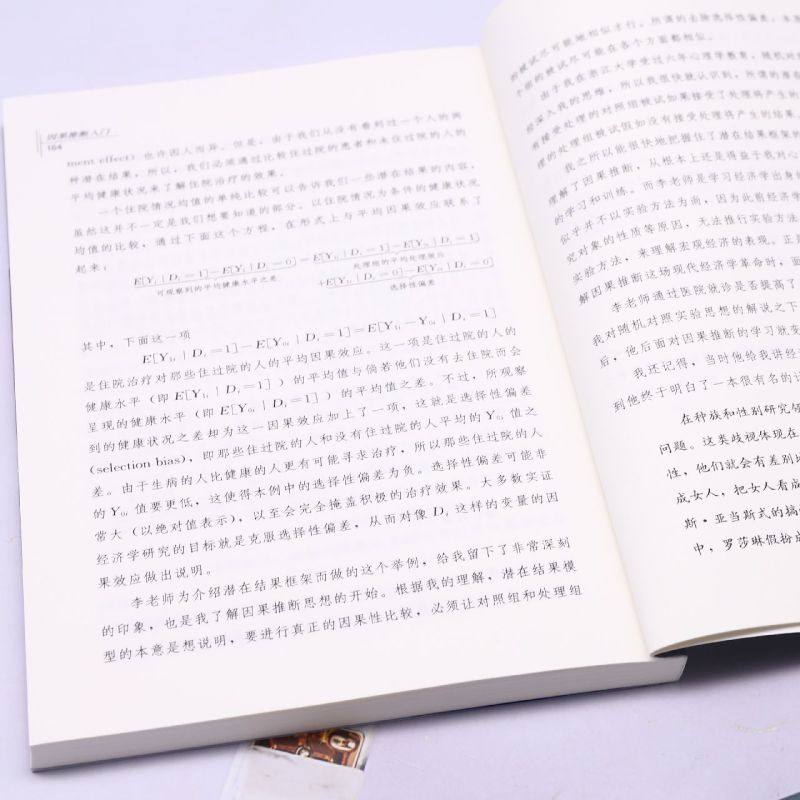 因果推断入门
164
ment effect）也许因人而异。但是，由于我们从没有看到过一个人的两
种潜在结果，所以，我们必须通过比较住过院的患者和未住过院的人的
平均健康状况来了解住院治疗的效果。
一个住院情况均值的单纯比较可以告诉我们一些潜在结果的内容，
虽然这并不一定是我们想要知道的部分。以住院情况为条件的健康状况
均值的比较，通过下面这个方程，在形式上与平均因果效应联系了
起来：
E[Yᵢ | Dᵢ=1]−E[Yᵢ | Dᵢ=0] = E[Y₁ᵢ | Dᵢ=1]−E[Y₀ᵢ | Dᵢ=1]
可观察到的平均健康水平之差 处理组的平均处理效应
+E[Y₀ᵢ | Dᵢ=1]−E[Y₀ᵢ | Dᵢ=0]
选择性偏差
其中，下面这一项
E[Y₁ᵢ | Dᵢ=1]−E[Y₀ᵢ | Dᵢ=1]=E[Y₁ᵢ−Y₀ᵢ | Dᵢ=1]
是住院治疗对那些住过院的人的平均因果效应。这一项是住过院的人的
健康水平（即 E[Y₁ᵢ | Dᵢ=1]）的平均值与倘若他们没有去住院而会
呈现的健康水平（即 E[Y₀ᵢ | Dᵢ=1]）的平均值之差。不过，所观察
到的健康状况之差却为这一因果效应加上了一项，这就是选择性偏差
(selection bias)，即那些住过院的人和没有住过院的人平均的 Y₀ᵢ 值之
差。由于生病的人比健康的人更有可能寻求治疗，所以那些住过院的人
的 Y₀ᵢ 值要更低，这使得本例中的选择性偏差为负。选择性偏差可能非
常大（以绝对值表示），以至会完全掩盖积极的治疗效果。大多数实证
经济学研究的目标就是克服选择性偏差，从而对像 Dᵢ 这样的变量的因
果效应做出说明。
李老师为介绍潜在结果框架而做的这个举例，给我留下了非常深刻
的印象，也是我了解因果推断思想的开始。根据我的理解，潜在结果模
型的本意是想说明，要进行真正的因果性比较，必须让对照组和处理组
的被试尽可能地相似才行。所谓的去除选择性偏差，本质
个组的被试尽可能在各个方面都相似。
由于我在浙江大学受过六年心理学教育，随机对
经深入我的思维，所以我很快就认识到，所谓的潜在
有接受处理的对照组被试如果接受了处理将产生的
理的处理组被试假如没有接受处理将产生的结果。
我之所以能很快地把握住了潜在结果框架的
理解了因果推断，从根本上还是得益于我对心
的学习和训练。而李老师是学习经济学出身的
似乎并不以实验方法为尚，因为此前经济学
究对象的性质等原因，无法推行实验方法
实验方法，来理解宏观经济的表现。正是
解因果推断这场现代经济学革命时，面
李老师通过医院就诊是否提高了
我对随机对照实验思想的解说之下
后，他后面对因果推断的学习就变
我还记得，当时他给我讲经
到他终于明白了一本很有名的
在种族和性别研究领
问题。这类歧视体现在
性，他们就会有差别地
成女人，把女人看成
斯·亚当斯式的搞
中，罗莎琳假扮成